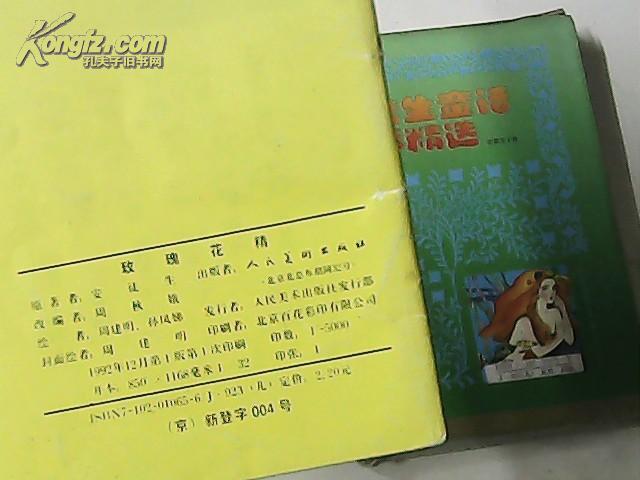 Kongfz.com
孔夫子旧书网
生童话
精选
玫瑰花精
原著者:安徒生 出版者:人民美术出版社
·北京北总布胡同32号·
改编者:周秋娥 发行者:人民美术出版社发行部
绘者:周建明、孙凤娣 印刷者:北京百花彩印有限公司
封面绘者:周建明 印数:1-5000
1992年12月第1版第1次印刷
开本:850·1168毫米1 32 印张:1
ISBN7-102-01065-6 J·923(儿)定价:2.20元
(京)新登字004号